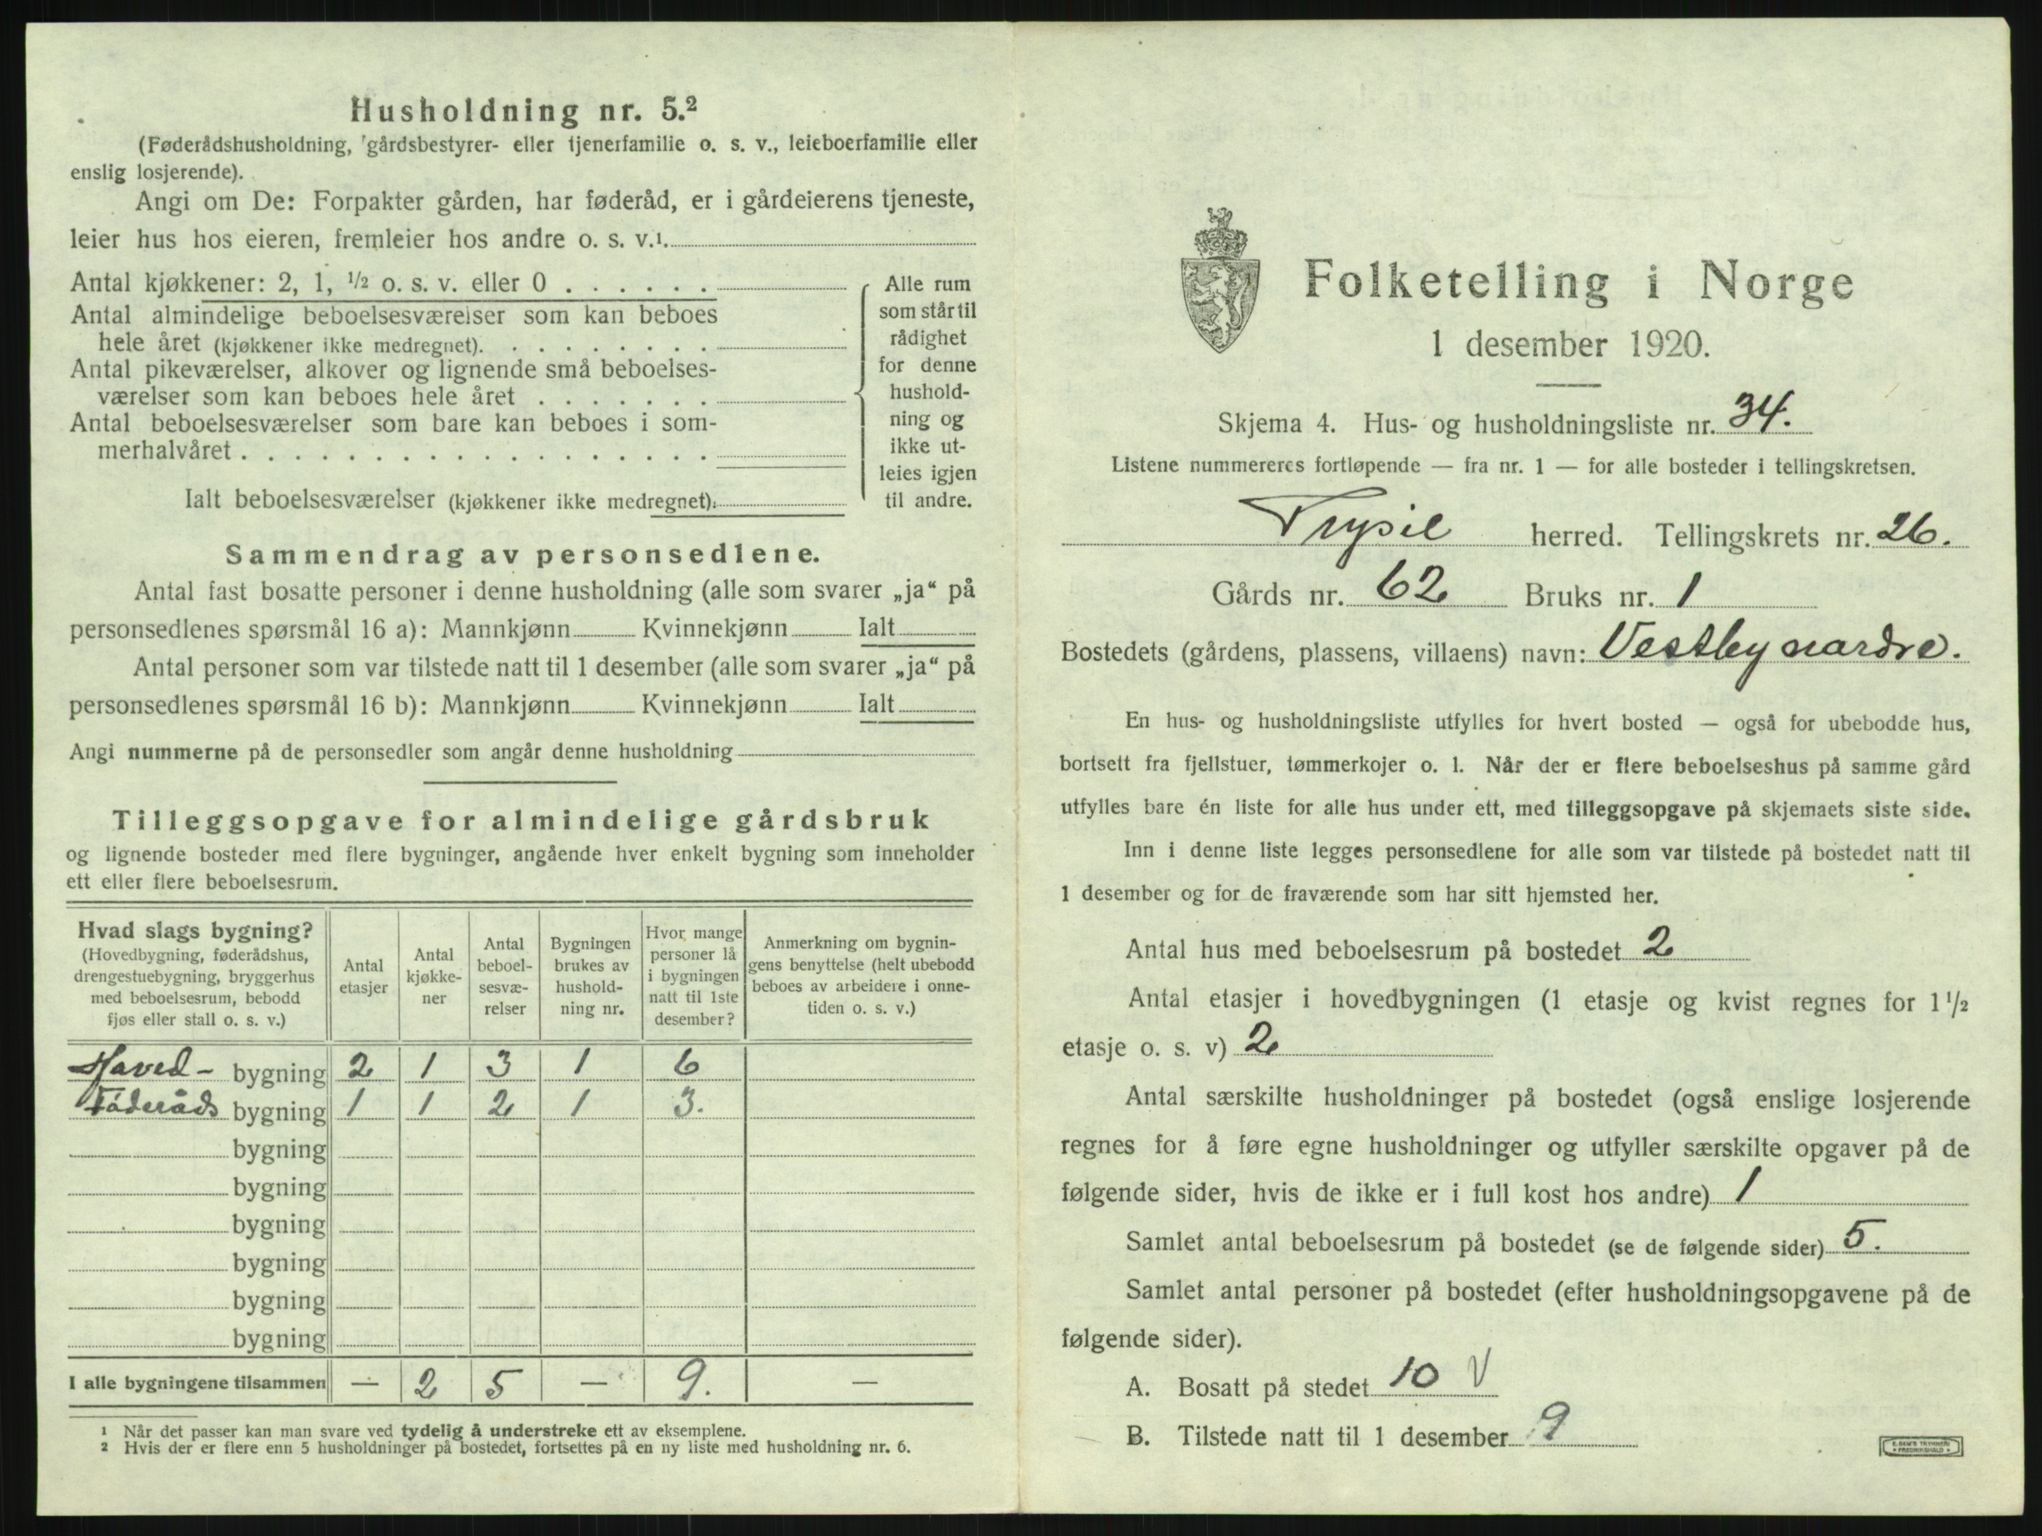 Husholdning nr. 5.²
(Føderådshusholdning, gårdsbestyrer- eller tjenerfamilie o. s. v., leieboerfamilie eller
enslig losjerende).
Angi om De: Forpakter gården, har føderåd, er i gårdeierens tjeneste,
leier hus hos eieren, fremleier hos andre o. s. v.¹.
Antal kjøkkener: 2, 1, ½ o. s. v. eller 0 . . . . . .
Antal almindelige beboelsesværelser som kan beboes
hele året (kjøkkener ikke medregnet). . . . . . . . .
Antal pikeværelser, alkover og lignende små beboelses-
værelser som kan beboes hele året . . . . . . .
Antal beboelsesværelser som bare kan beboes i som-
merhalvåret . . . . . . . . . . . . . . . . . .
Ialt beboelsesværelser (kjøkkener ikke medregnet):
Alle rum
som står til
rådighet
for denne
hushold-
ning og
ikke ut-
leies igjen
til andre.
Sammendrag av personsedlene.
Antal fast bosatte personer i denne husholdning (alle som svarer „ja“ på
personsedlenes spørsmål 16 a): Mannkjønn Kvinnekjønn Ialt
Antal personer som var tilstede natt til 1 desember (alle som svarer „ja“ på
personsedlenes spørsmål 16 b): Mannkjønn Kvinnekjønn Ialt
Angi nummerne på de personsedler som angår denne husholdning
Tilleggsopgave for almindelige gårdsbruk
og lignende bosteder med flere bygninger, angående hver enkelt bygning som inneholder
ett eller flere beboelsesrum.
Hvad slags bygning?
(Hovedbygning, føderådshus,
drengestuebygning, bryggerhus
med beboelsesrum, bebodd
fjøs eller stall o. s. v.)
Antal
etasjer
Antal
kjøkke-
ner
Antal
beboel-
sesvæ-
relser
Bygningen
brukes av
hushold-
ning nr.
Hvor mange
personer lå
i bygningen
natt til 1ste
desember?
Anmerkning om bygnin-
gens benyttelse (helt ubebodd
beboes av arbeidere i onne-
tiden o. s. v.)
Hoved- bygning 2 1 3 1 6
Føderåds bygning 1 1 2 1 3.
bygning
bygning
bygning
bygning
bygning
bygning
I alle bygningene tilsammen — 2 5 — 9. —
¹ Når det passer kan man svare ved tydelig å understreke ett av eksemplene.
² Hvis der er flere enn 5 husholdninger på bostedet, fortsettes på en ny liste med husholdning nr. 6.
Folketelling i Norge
1 desember 1920.
Skjema 4. Hus- og husholdningsliste nr. 34.
Listene nummereres fortløpende — fra nr. 1 — for alle bosteder i tellingskretsen.
Trysil herred. Tellingskrets nr. 26.
Gårds nr. 62 Bruks nr. 1
Bostedets (gårdens, plassens, villaens) navn: Vestby nardre.
En hus- og husholdningsliste utfylles for hvert bosted — også for ubebodde hus,
bortsett fra fjellstuer, tømmerkojer o. l. Når der er flere beboelseshus på samme gård
utfylles bare én liste for alle hus under ett, med tilleggsopgave på skjemaets siste side.
Inn i denne liste legges personsedlene for alle som var tilstede på bostedet natt til
1 desember og for de fraværende som har sitt hjemsted her.
Antal hus med beboelsesrum på bostedet 2
Antal etasjer i hovedbygningen (1 etasje og kvist regnes for 1 ½
etasje o. s. v) 2
Antal særskilte husholdninger på bostedet (også enslige losjerende
regnes for å føre egne husholdninger og utfyller særskilte opgaver på de
følgende sider, hvis de ikke er i full kost hos andre) 1
Samlet antal beboelsesrum på bostedet (se de følgende sider) 5.
Samlet antal personer på bostedet (efter husholdningsopgavene på de
følgende sider).
A. Bosatt på stedet 10 V
B. Tilstede natt til 1 desember 9